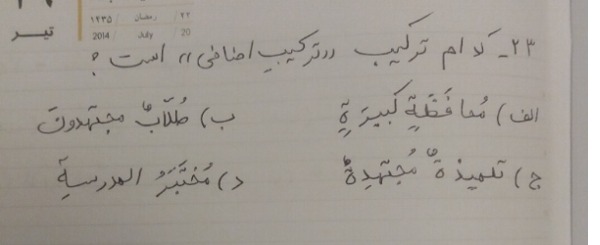 تیر
۱۴۳۵ / رمضان / ۲۲
2014 / July / 20
۲۳ـ کدام ترکیب ,,ترکیبِ اضافی,, است ؟
الف) مُحافَظَةٍ کَبیرَةٍ ب) طُلّابٌ مجتهدونَ
ج) تلمیذةٌ مُجتَهِدةٌ د) مُختَبَرُ المدرسةِ